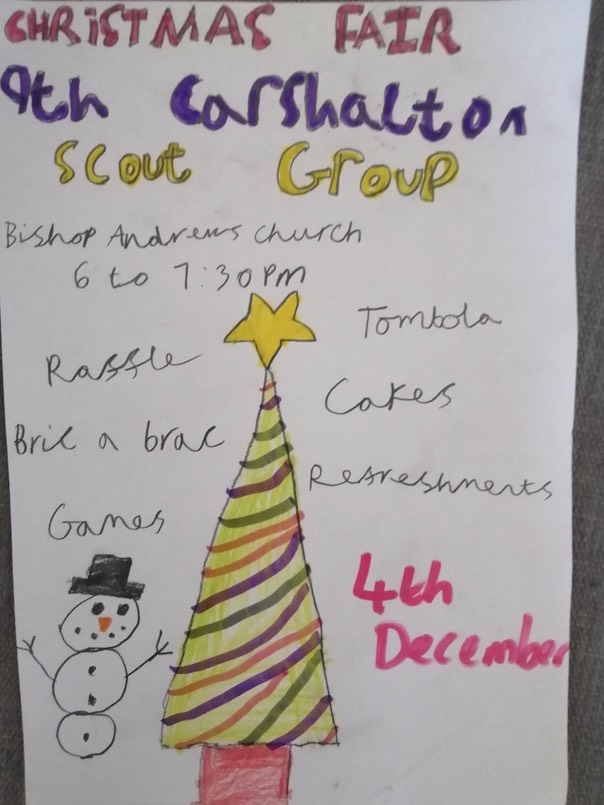 CHRISTMAS FAIR
9th Carshalton
Scout Group
Bishop Andrews Church
6 to 7:30pm
Tombola
Raffle
Cakes
Bric a brac
Refreshments
Games
4th
December